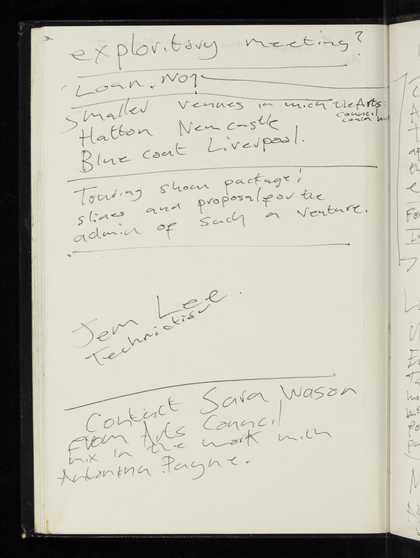 exploritory meeting?
Loan. No?
Smaller venues in mich the Arts
Council
Hatton Newcastle
Blue coat Liverpool.
Touring show package!
slides and proposal for the
admin of such a venture.
Jem Lee.
Technician
Contact Sara Wason
From Arts Council
mix in the work with
Antonina Payne.